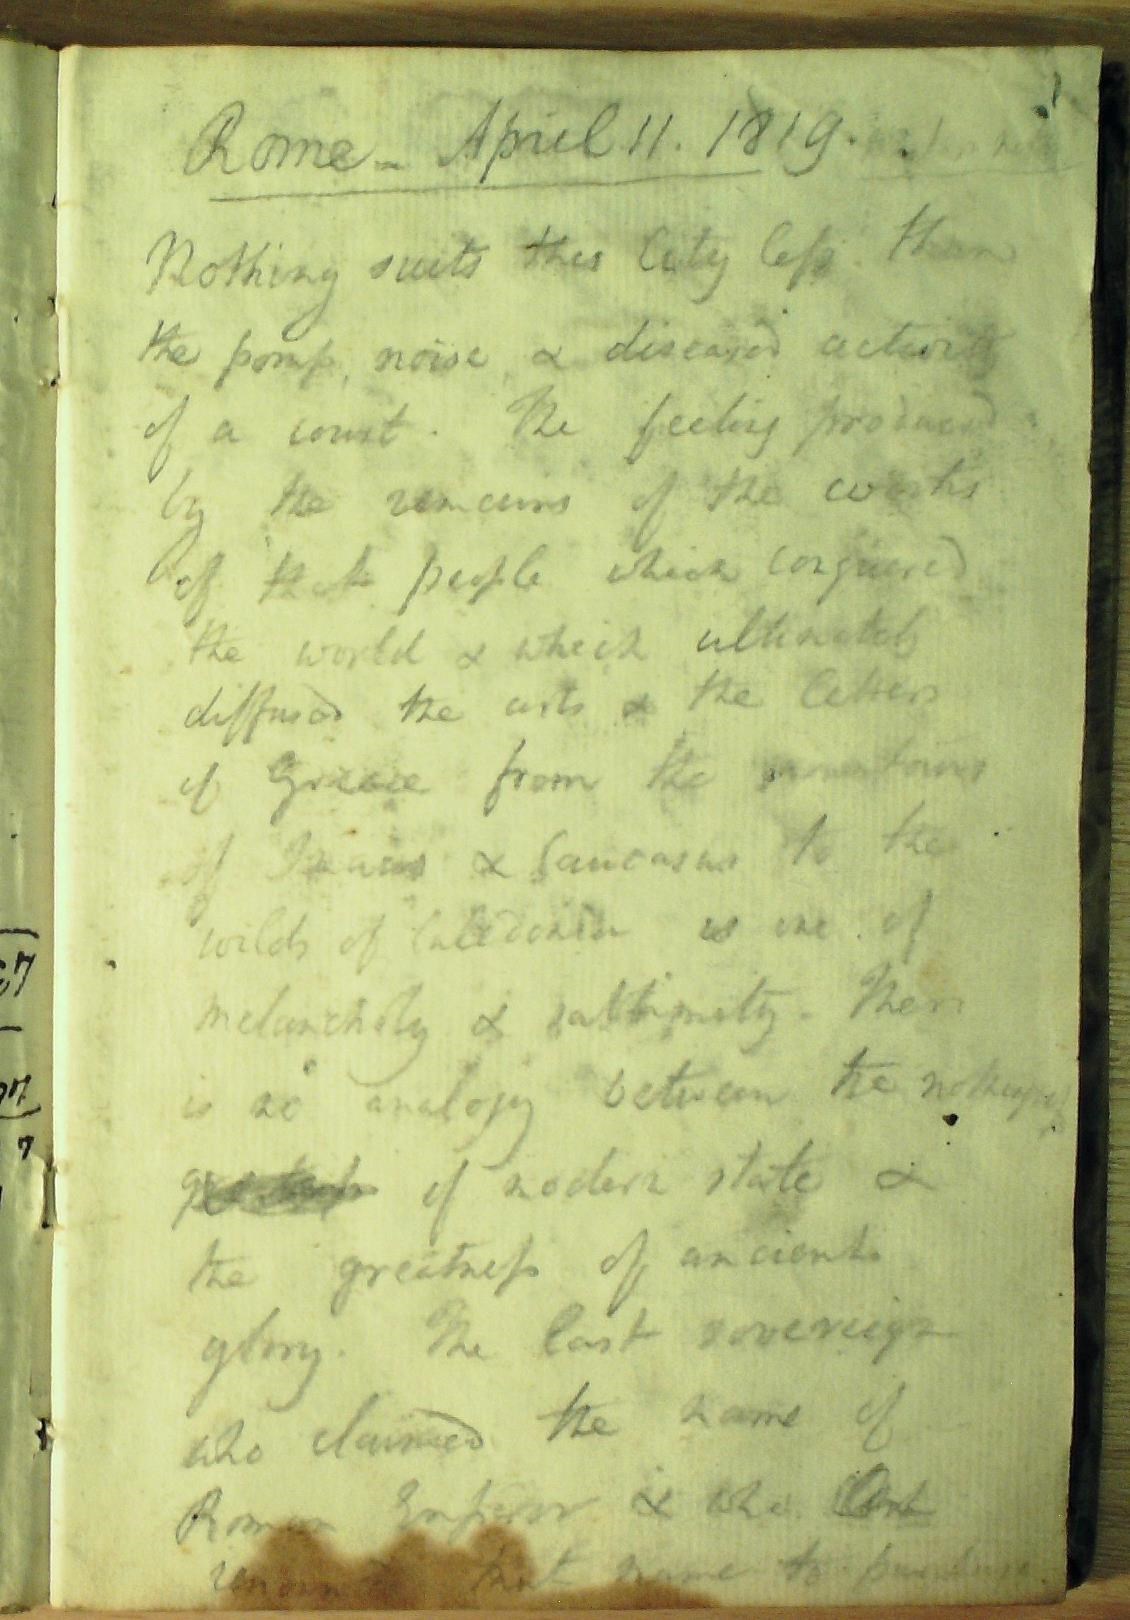 1
Rome - April 11. 1819.
Nothing suits this City less than
the pomp, noise & diseased activity
of a court. The feeling produced
by the remains of the works
of that people which conquered
the world & which ultimately
diffused the arts & the letters
of Greece from the mountains
of & Caucasus to the
wilds of Caledonia is one of
melancholy & sublimity. There
is no analogy between the nothingness
of modern state &
the greatness of ancient
glory. The last sovereign
who claimed the name of
Roman Emperor & who
that name to
67
97
7